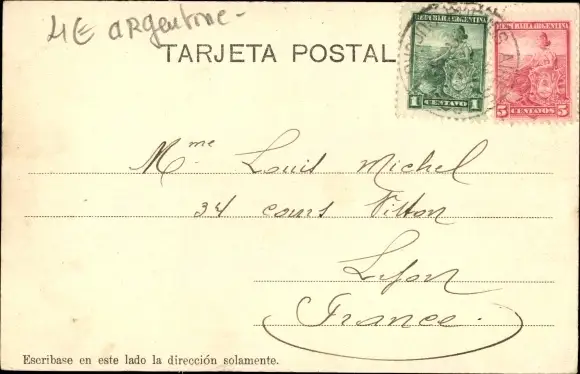 4€ argentine -
TARJETA POSTAL
REPUBLICA ARGENTINA
1 CENTAVO 1
REPUBLICA ARGENTINA
5 CENTAVOS 5
Mme Louis Michel
34 cours Vitton
Lyon
France.
Escribase en este lado la dirección solamente.